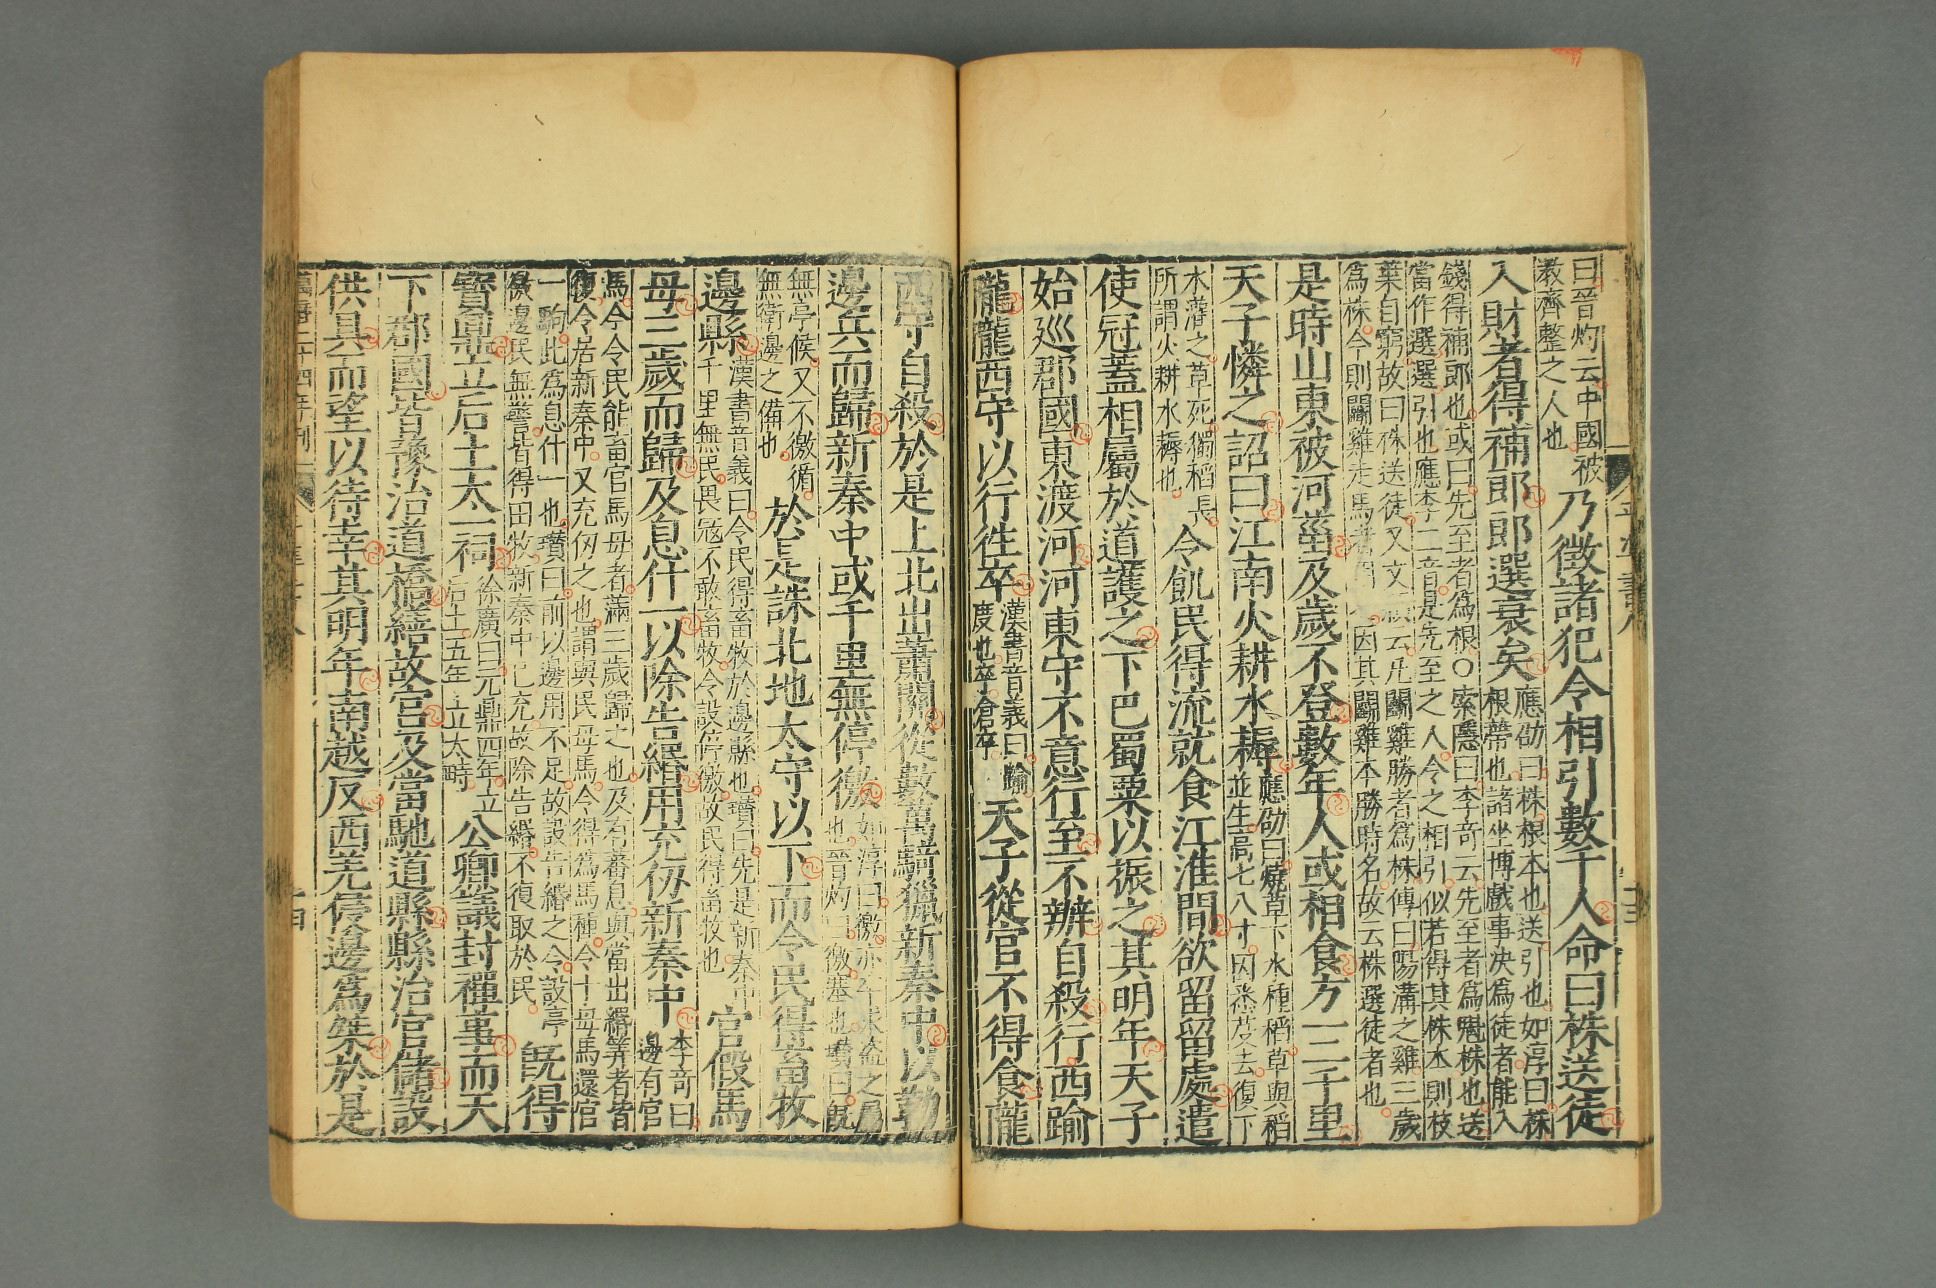 曰晉灼云中國被
教齊整之人也
乃徵諸犯令相引數千人命曰株送徒
入財者得補郎郎選衰矣
應劭曰株根本也送引也如淳曰株
根帶也諸坐博戲事决為徒者能入
錢得補郎也或曰先至者為根○索隱曰李奇云先至者為魁株也送
當作選選引也應李二音是先至之人令之相引似若得其株本則枝
葉自窮故曰株送徒又文穎云凡鬬雞勝者為株傳曰陽溝之雞三歲
為株今則鬬雞走馬者用之因其鬬雞本勝時名故云株選徒者也
是時山東被河菑及歲不登數年人或相食方一二千里
天子憐之詔曰江南火耕水耨
應劭曰燒草下水種稻草與稻
並生高七八寸因悉芟去復下
本灌之草死獨稻長
所謂火耕水耨也
令飢民得流就食江淮間欲留留處遣
使冠蓋相屬於道護之下巴蜀粟以振之其明年天子
始廵郡國東渡河河東守不意行至不辨自殺行西踰
隴隴西守以行徃卒
漢書音義曰踰
度也卒倉卒
天子從官不得食隴
西守自殺於是上北出蕭關從數萬騎獵新秦中以勒
邊兵而歸新秦中或千里無停徼
如淳曰徼亦卒求盜之屬
也晉灼曰徼塞也瓚曰既
無亭候又不徼循
無衛邊之備也
於是誅北地太守以下而令民得畜牧
邊縣
漢書音義曰令民得畜牧於邊縣也瓚曰先是新秦中
千里無民畏寇不敢畜牧令設停徼故民得畜牧也
官假馬
母三歲而歸及息什一以除告緡用充仞新秦中
李奇曰
邊有官
馬今令民能畜官馬母者滿三歲歸之也及有蕃息與當出緡筭者皆
復令居新秦中又充仞之也謂與民母馬令得為馬種令十母馬還官
一駒此為息什一也瓚曰前以邊用不足故設告緡之令設亭
徼邊民無警皆得田牧新秦中已充故除告緡不復取於民
既得
寶鼎立后土太一祠
徐廣曰元鼎四年立
后土五年立太畤
公卿議封禪事而天
下郡國皆豫治道橋繕故宮及當馳道縣縣治官儲設
供具而望以待幸其明年南越反西羌侵邊為桀於是
十四